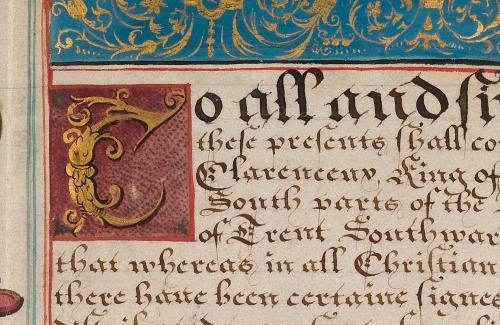 To all and si
these presents shall co
Clarenceux King of
South parts of the
of Trent Southwar
that whereas in all Christian
there have been certaine signes